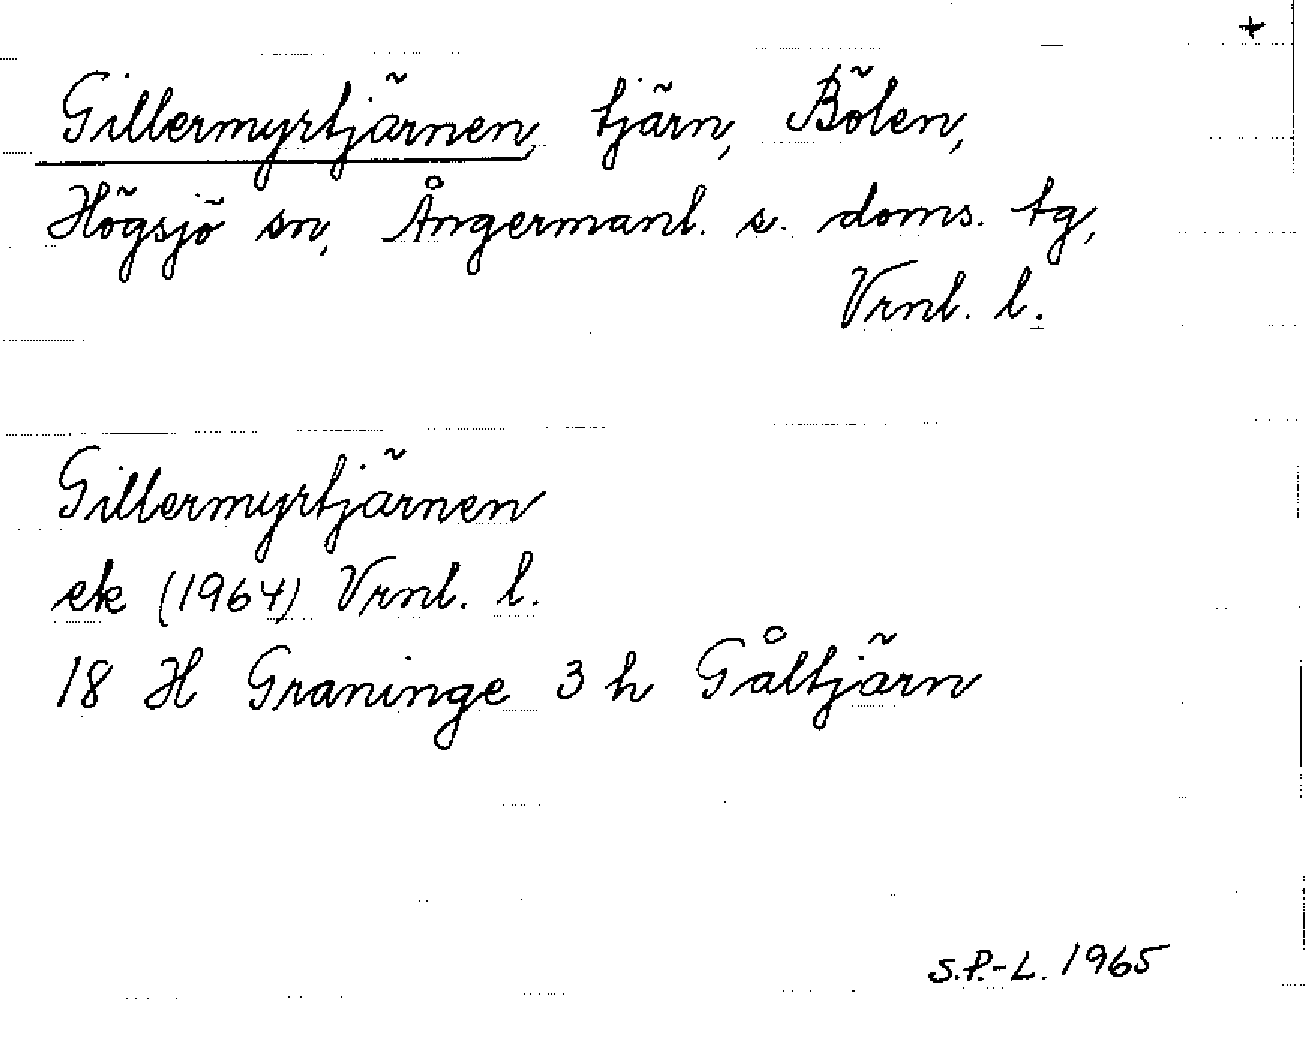 +
Gillermyrtjärnen, tjärn, Bölen,
Högsjö sn, Ångermanl. s. doms. tg,
Vrnl. l.
Gillermyrtjärnen
ek (1964) Vrnl. l.
18 H Graninge 3 h Gåltjärn
S.P.-L. 1965